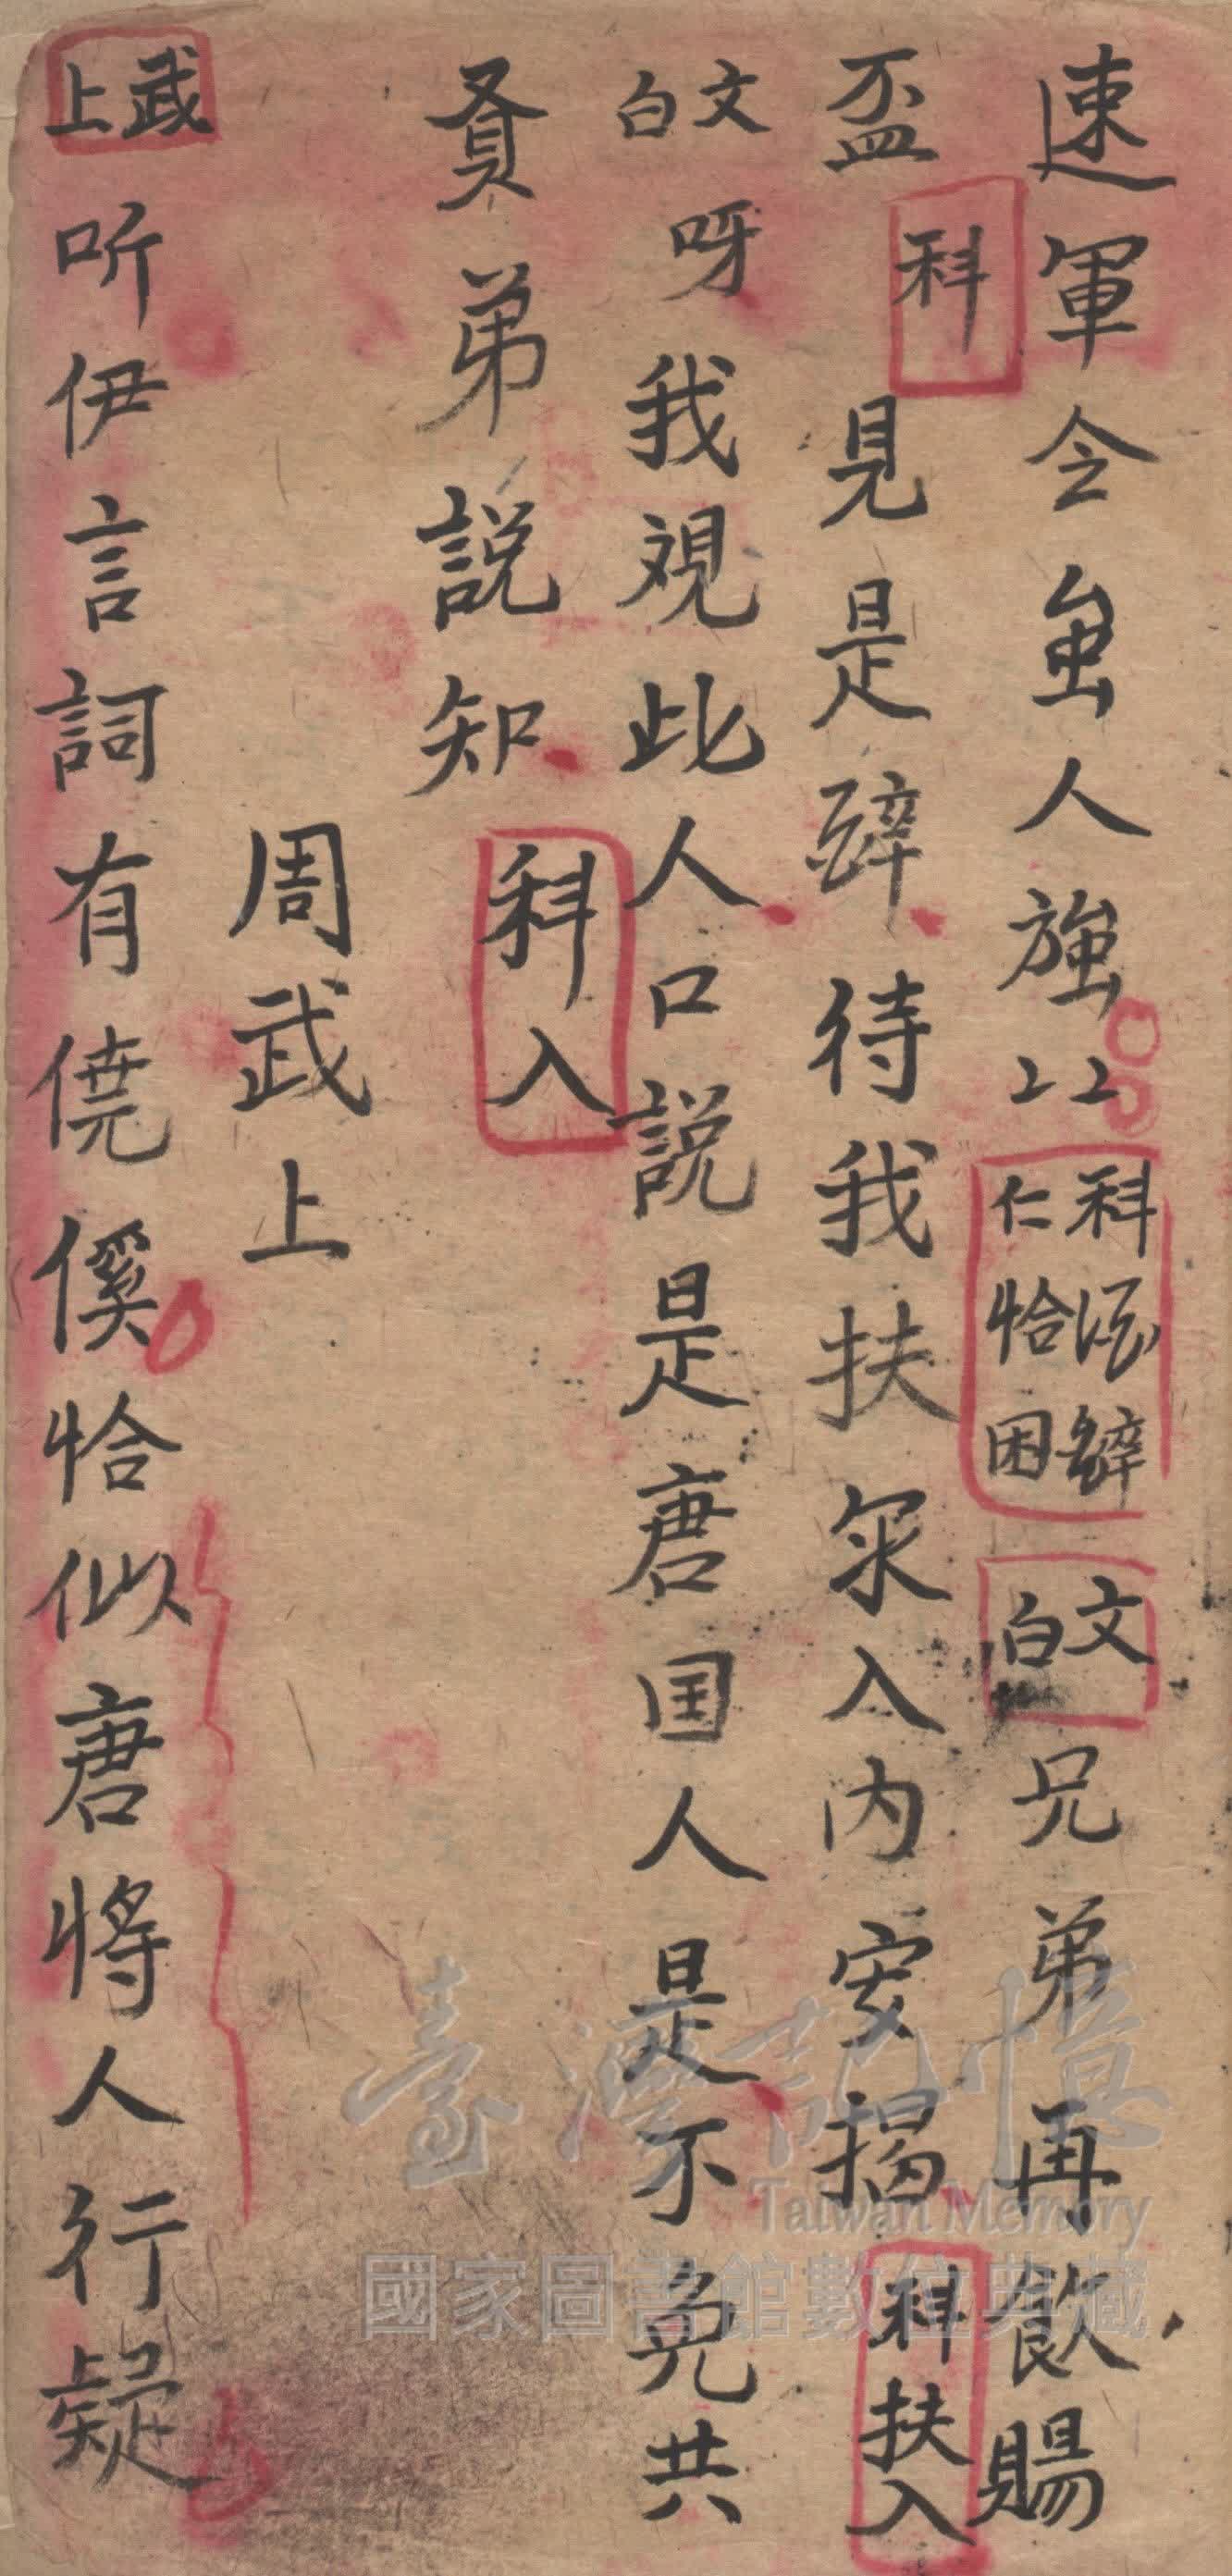 速軍令虽人強々々科酒醉仁恰困文白兄弟再飲賜
盃科見是醉待我扶伊入內安搨科扶入
文白呀我視此人口説是唐国人是不免共
賢弟説知科入
周武上
武上听伊言詞有僥傒恰似唐將人行疑
臺灣記憶
Taiwan Memory
國家圖書館數位典藏